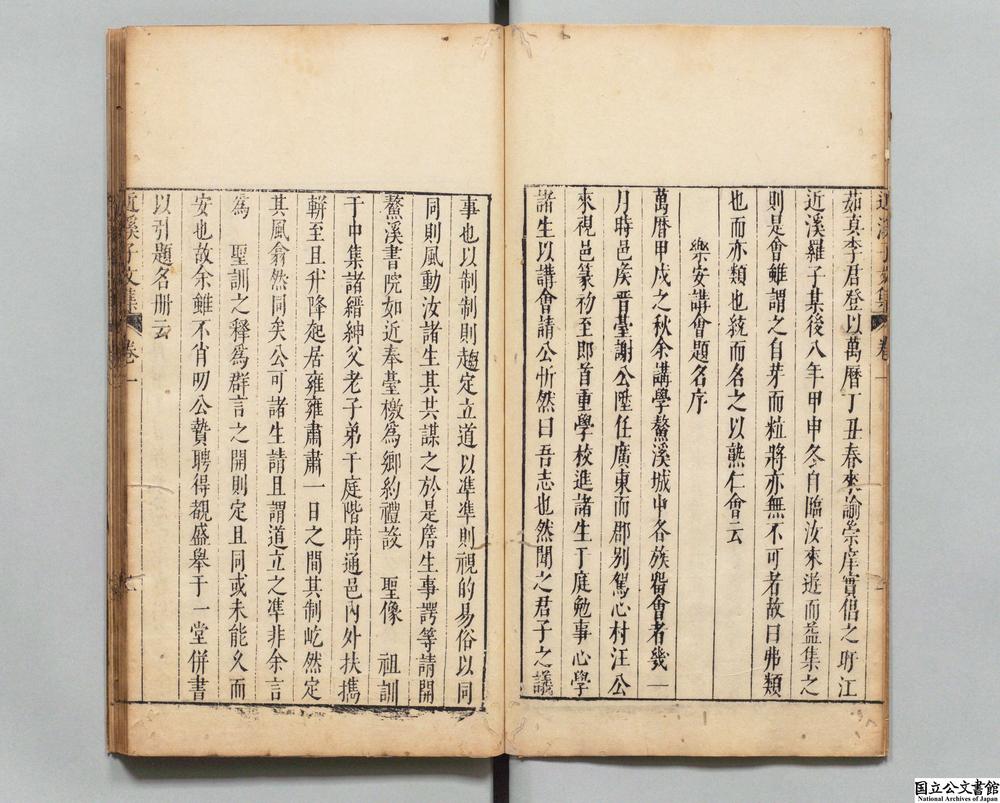 近溪子文集 卷一
茹真李君登以萬曆丁丑春來諭崇庠實倡之盱江
近溪羅子某後八年甲申冬自臨汝來遊而益集之
則是會雖謂之自芽而粒將亦無不可者故曰弗類
也而亦類也統而名之以熟仁會云
樂安講會題名序
萬曆甲戌之秋余講學鰲溪城中各族畱會者幾一
月時邑矦晋臺謝公陞任廣東而郡别駕心村汪公
來視邑篆初至即首重學校進諸生于庭勉事心學
諸生以講會請公忻然曰吾志也然聞之君子之議
事也以制制則趨定立道以凖凖則視的易俗以同
同則風動汝諸生其共謀之於是詹生事諤等請開
鰲溪書院如近奉臺檄為鄉約禮設 聖像 祖訓
于中集諸縉紳父老子弟于庭階時通邑內外扶攜
輧至且升降起居雍雍肅肅一日之間其制屹然定
其風翕然同矣公可諸生請且謂道立之凖非余言
為 聖訓之釋為群言之開則定且同或未能久而
安也故余雖不肖明公贄聘得覩盛舉于一堂併書
以引題名册云
近溪子文集 卷一
国立公文書館
National Archives of Japan